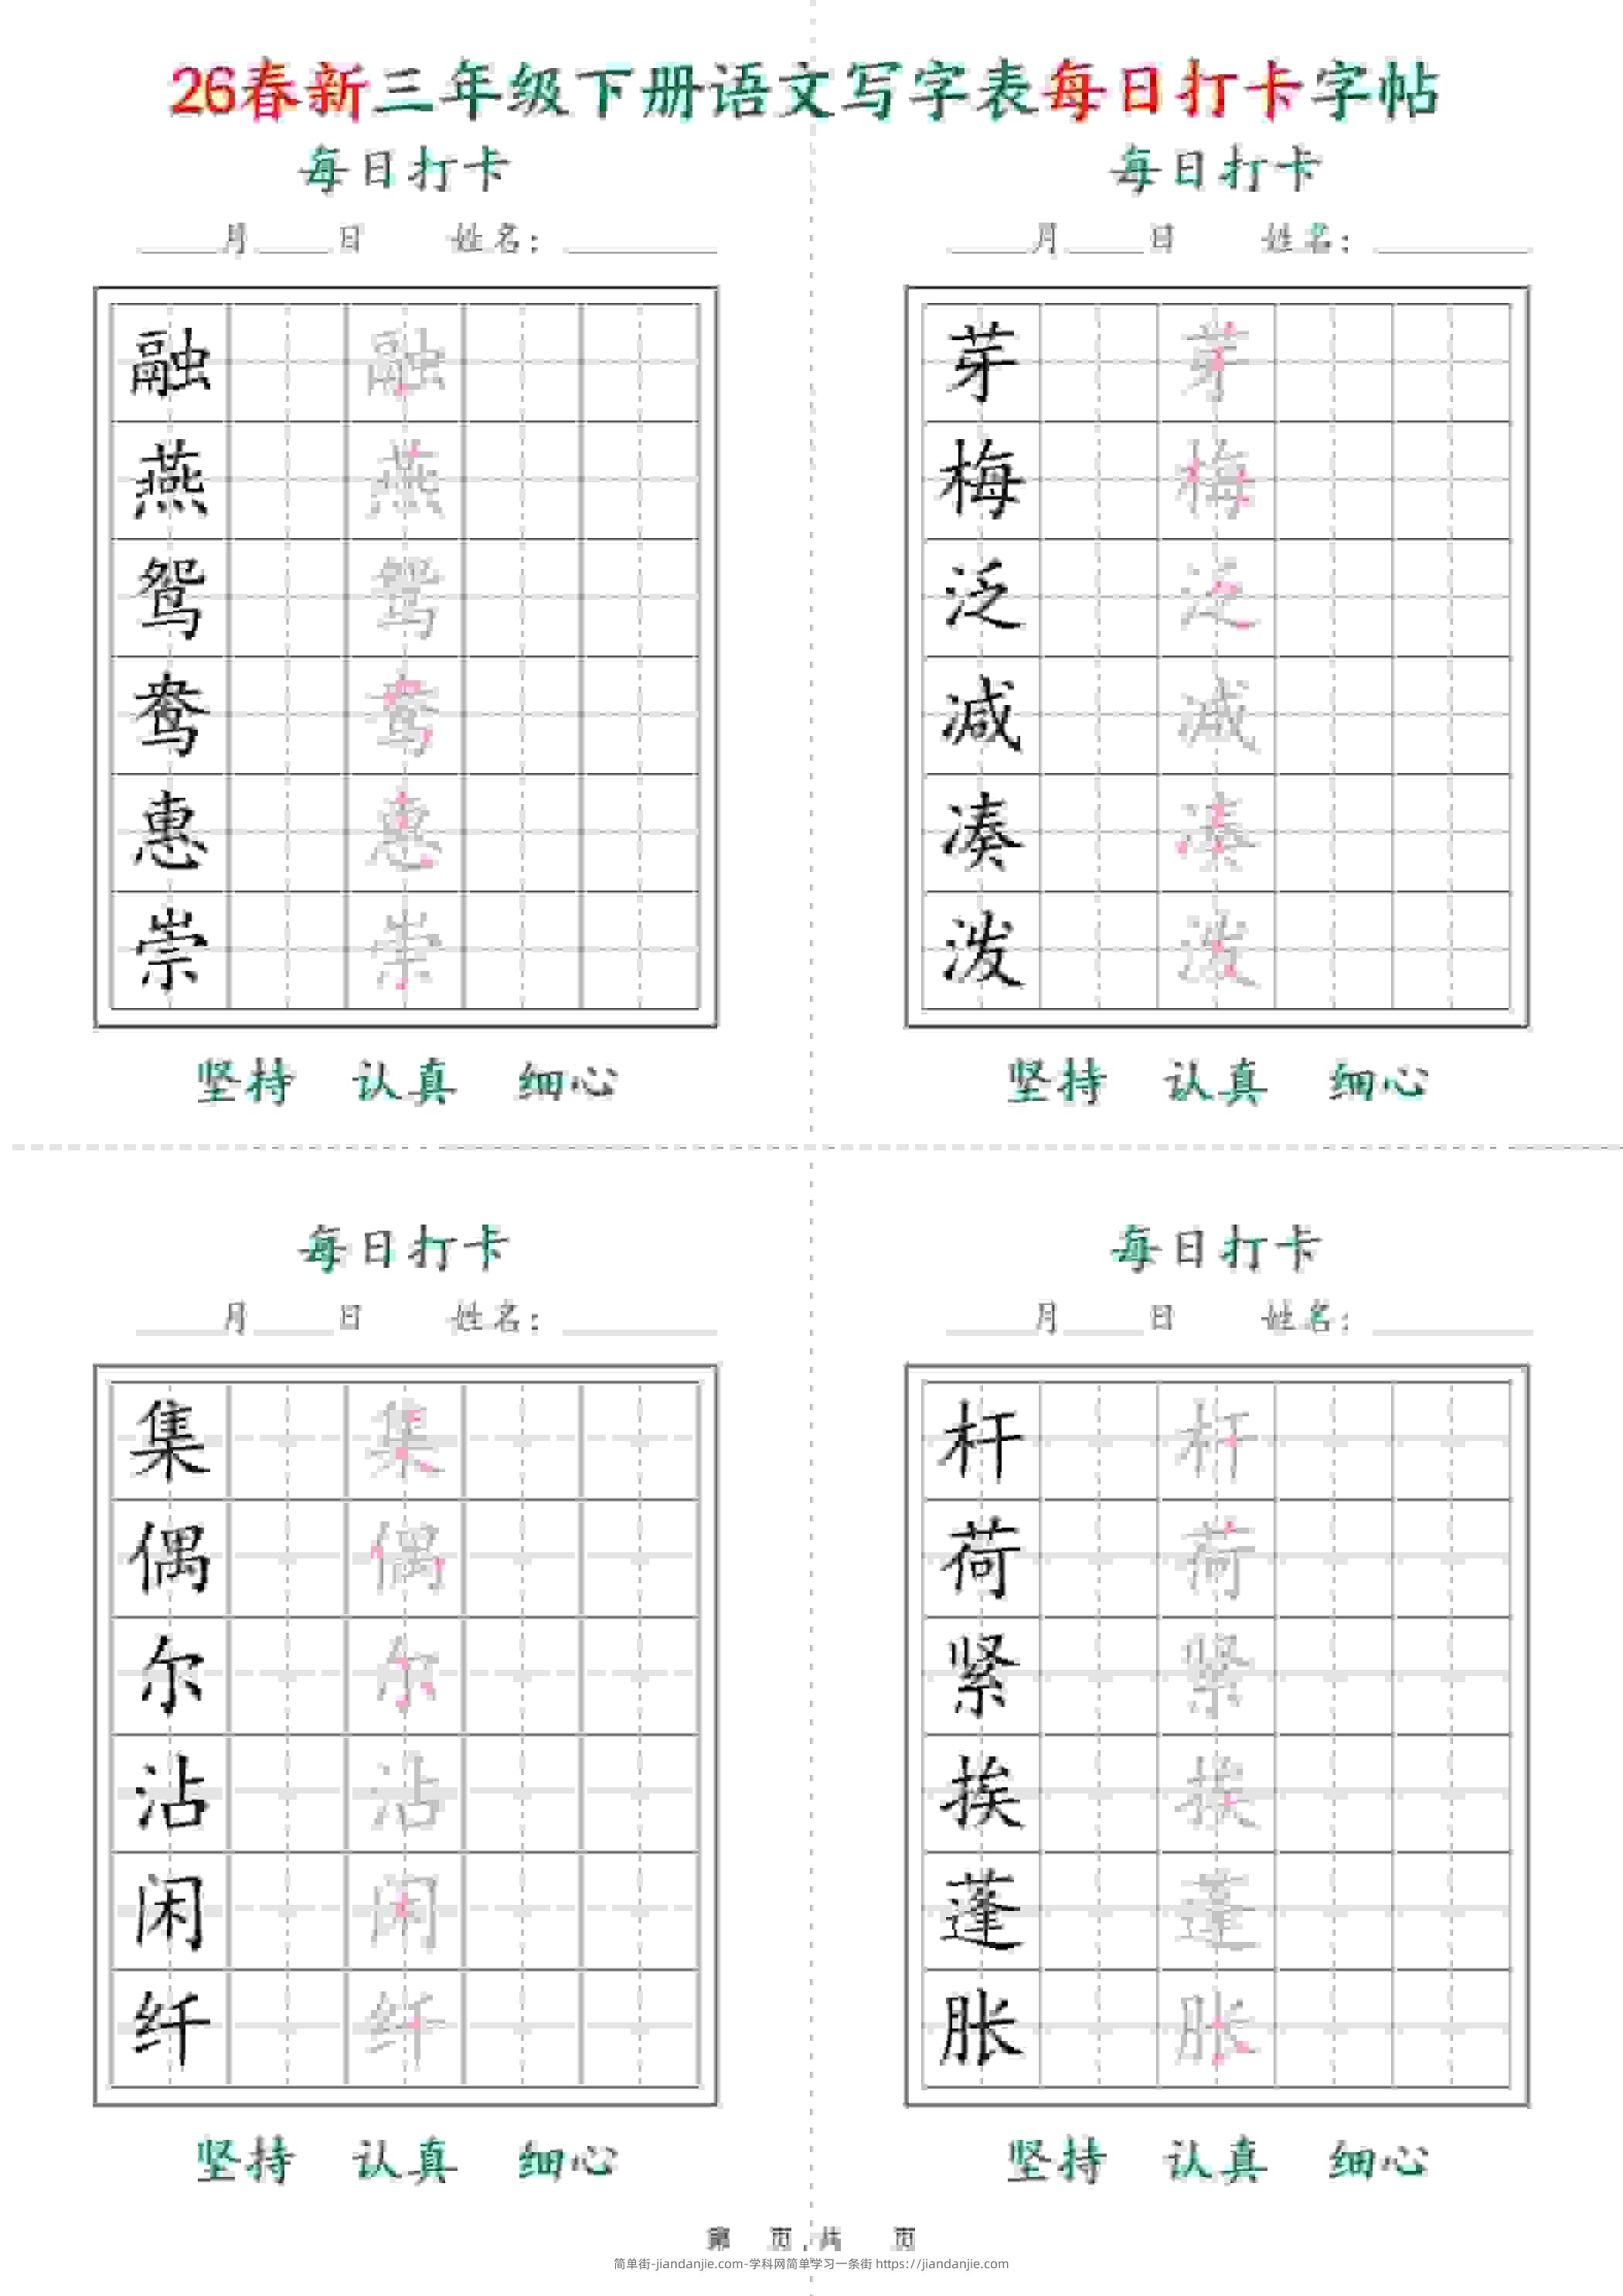 26春新三年级下册语文写字表每日打卡字帖
每日打卡
____月____日 姓名：________
融 融
燕 燕
鸳 鸳
鸯 鸯
惠 惠
崇 崇
坚持 认真 细心
每日打卡
____月____日 姓名：________
芽 芽
梅 梅
泛 泛
减 减
凑 凑
泼 泼
坚持 认真 细心
每日打卡
____月____日 姓名：________
集 集
偶 偶
尔 尔
沾 沾
闲 闲
纤 纤
坚持 认真 细心
每日打卡
____月____日 姓名：________
杆 杆
荷 荷
紧 紧
挨 挨
蓬 蓬
胀 胀
坚持 认真 细心
第 页,共 页
简单街-jiandanjie.com-学科网简单学习一条街 https://jiandanjie.com